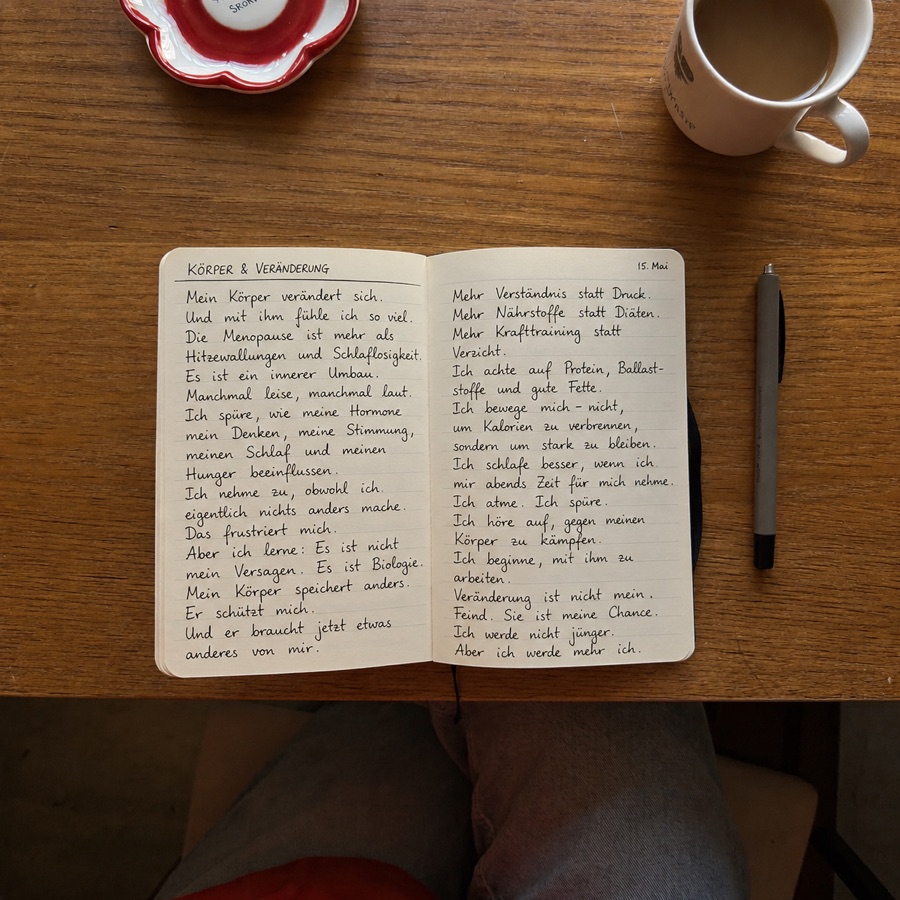 KÖRPER & VERÄNDERUNG
Mein Körper verändert sich.
Und mit ihm fühle ich so viel.
Die Menopause ist mehr als
Hitzewallungen und Schlaflosigkeit.
Es ist ein innerer Umbau.
Manchmal leise, manchmal laut.
Ich spüre, wie meine Hormone
mein Denken, meine Stimmung,
meinen Schlaf und meinen
Hunger beeinflussen.
Ich nehme zu, obwohl ich.
eigentlich nichts anders mache.
Das frustriert mich.
Aber ich lerne: Es ist nicht
mein Versagen. Es ist Biologie.
Mein Körper speichert anders.
Er schützt mich.
Und er braucht jetzt etwas
anderes von mir.
15. Mai
Mehr Verständnis statt Druck.
Mehr Nährstoffe statt Diäten.
Mehr Krafttraining statt
Verzicht.
Ich achte auf Protein, Ballast-
stoffe und gute Fette.
Ich bewege mich – nicht,
um Kalorien zu verbrennen,
sondern um stark zu bleiben.
Ich schlafe besser, wenn ich.
mir abends Zeit für mich nehme.
Ich atme. Ich spüre.
Ich höre auf, gegen meinen
Körper zu kämpfen.
Ich beginne, mit ihm zu
arbeiten.
Veränderung ist nicht mein.
Feind. Sie ist meine Chance.
Ich werde nicht jünger.
Aber ich werde mehr ich.